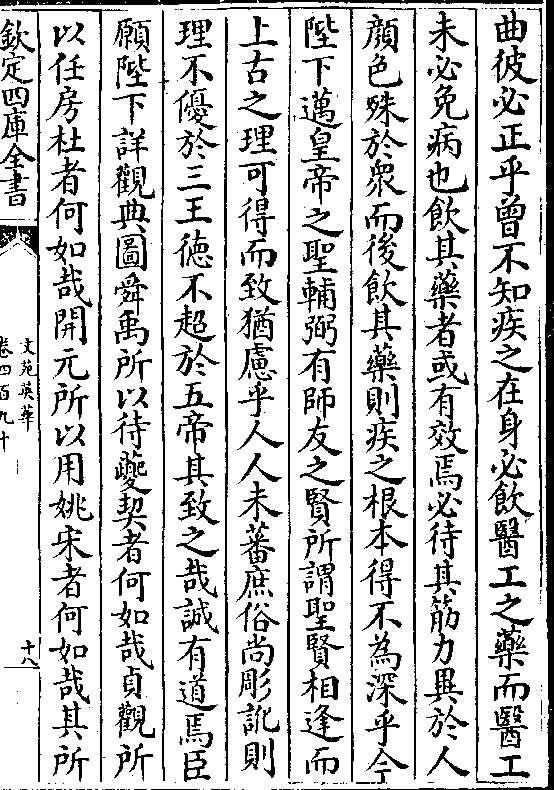 曲彼必正乎曾不知疾之在身必飲醫工之藥而醫工
未必免病也飲其藥者或有效焉必待其筋力異於人
顔色殊於衆而後飲其藥則疾之根本得不為深乎今
陛下邁皇帝之聖輔弼有師友之賢所謂聖賢相逢而
上古之理可得而致猶慮乎人人未蕃庶俗尚彫訛則
理不優於三王德不超於五帝其致之哉誠有道焉臣
願陛下詳觀典圖舜禹所以待夔契者何如哉貞觀所
以任房杜者何如哉開元所以用姚宋者何如哉其所
欽定四庫全書
文苑英華
卷四百九十
十八